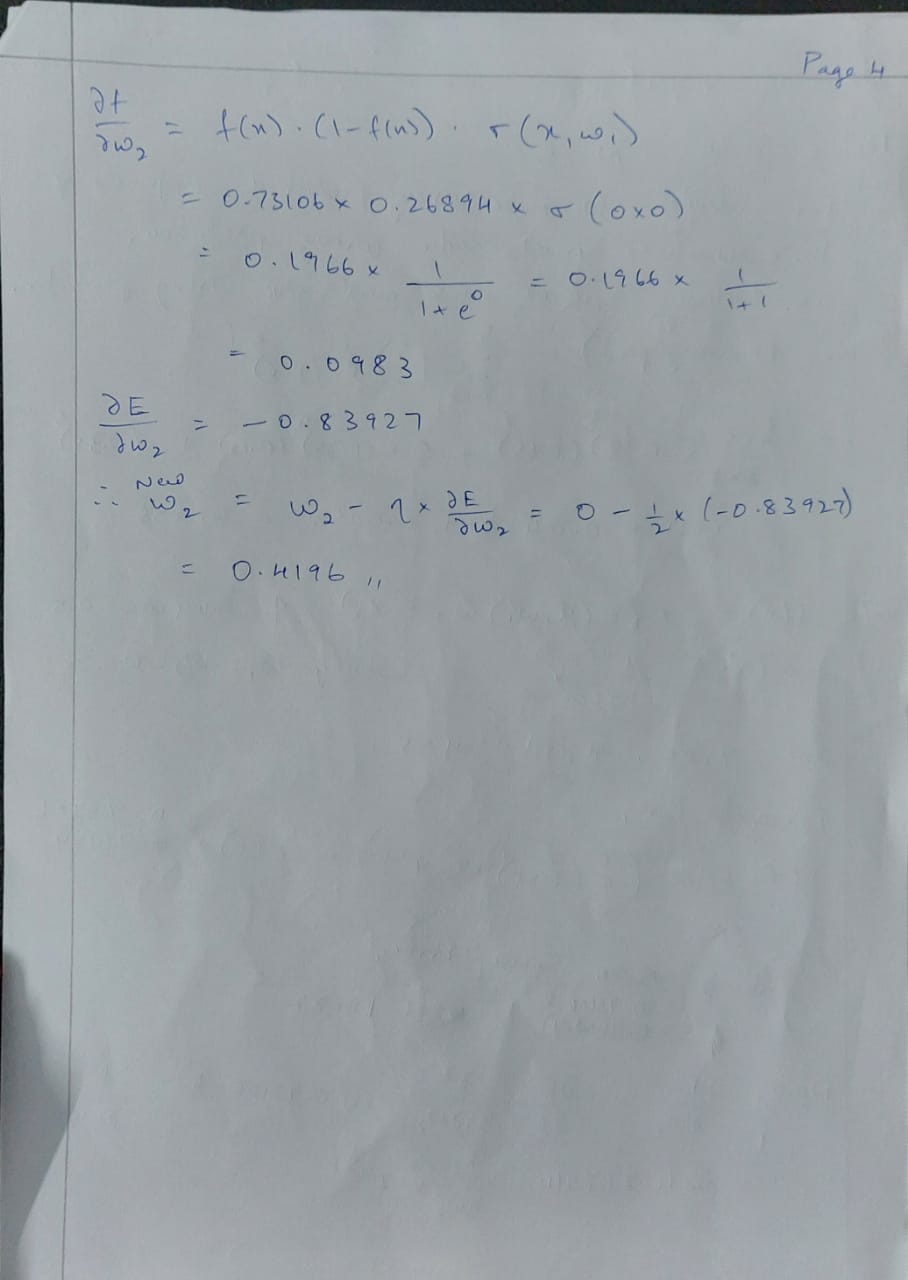 Page 4
∂f/∂w₂ = f(x) . (1-f(x)) . σ(x₁w₁)
= 0.73106 x 0.26894 x σ(0x0)
= 0.1966 x 1/(1+e⁰) = 0.1966 x 1/(1+1)
= 0.0983
∂E/∂w₂ = -0.83927
∴ w₂^New = w₂ - η x ∂E/∂w₂ = 0 - 1/2 x (-0.83927)
= 0.4196 〃